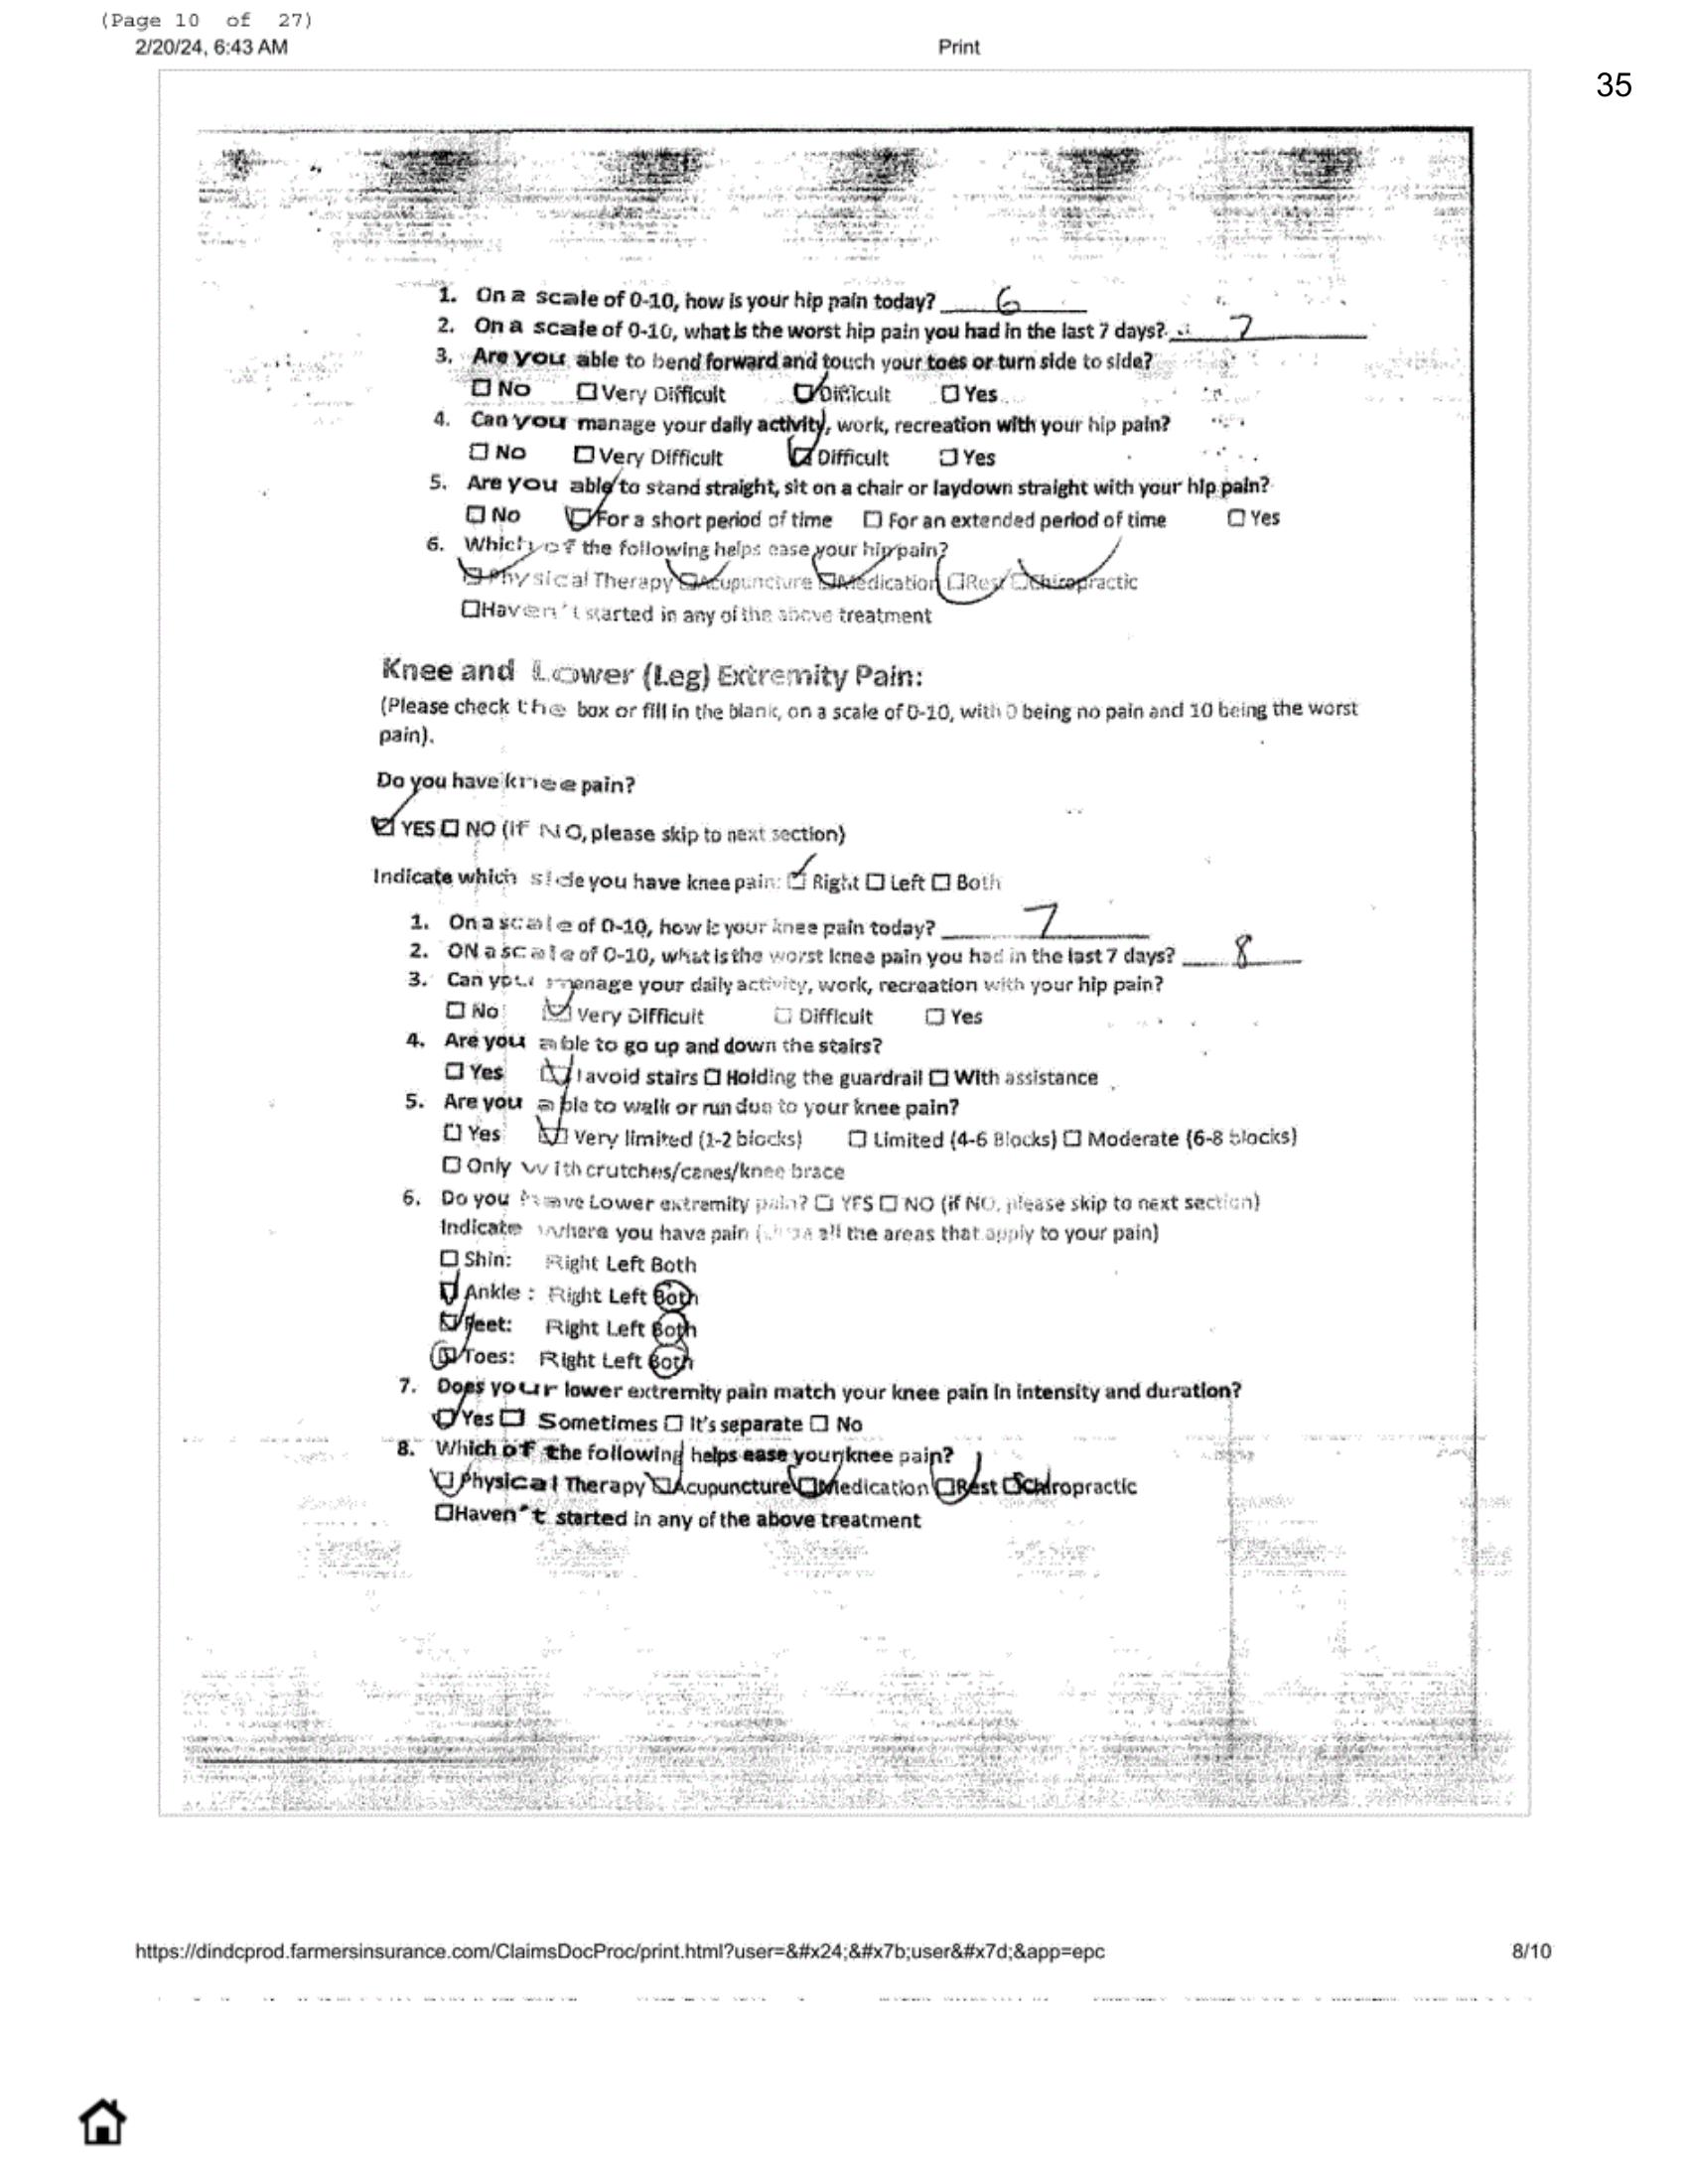 (Page 10 of 27)
2/20/24, 6:43 AM Print
35
1. On a scale of 0-10, how is your hip pain today? 6
2. On a scale of 0-10, what is the worst hip pain you had in the last 7 days? 7
3. Are you able to bend forward and touch your toes or turn side to side?
☐ No ☐ Very Difficult ☑ Difficult ☐ Yes
4. Can you manage your daily activity, work, recreation with your hip pain?
☐ No ☐ Very Difficult ☑ Difficult ☐ Yes
5. Are you able to stand straight, sit on a chair or laydown straight with your hip pain?
☐ No ☑ For a short period of time ☐ For an extended period of time ☐ Yes
6. Which of the following helps ease your hip pain?
☑ Physical Therapy ☑ Acupuncture ☑ Medication ☑ Rest ☑ Chiropractic
☐ Haven't started in any of the above treatment
Knee and Lower (Leg) Extremity Pain:
(Please check the box or fill in the blank, on a scale of 0-10, with 0 being no pain and 10 being the worst
pain).
Do you have knee pain?
☑ YES ☐ NO (IF NO, please skip to next section)
Indicate which side you have knee pain: ☑ Right ☐ Left ☐ Both
1. On a scale of 0-10, how is your knee pain today? 7
2. ON a scale of 0-10, what is the worst knee pain you had in the last 7 days? 8
3. Can you manage your daily activity, work, recreation with your hip pain?
☐ No ☑ Very Difficult ☐ Difficult ☐ Yes
4. Are you able to go up and down the stairs?
☐ Yes ☑ I avoid stairs ☐ Holding the guardrail ☐ With assistance
5. Are you able to walk or run due to your knee pain?
☐ Yes ☑ Very limited (1-2 blocks) ☐ Limited (4-6 Blocks) ☐ Moderate (6-8 blocks)
☐ Only with crutches/canes/knee brace
6. Do you have Lower extremity pain? ☐ YES ☐ NO (if NO, please skip to next section)
Indicate where you have pain all the areas that apply to your pain)
☐ Shin: Right Left Both
☑ Ankle : Right Left Both
☑ Feet: Right Left Both
☑ Toes: Right Left Both
7. Does your lower extremity pain match your knee pain in intensity and duration?
☑ Yes ☐ Sometimes ☐ It's separate ☐ No
8. Which of the following helps ease your knee pain?
☑ Physical Therapy ☑ Acupuncture ☑ Medication ☑ Rest ☑ Chiropractic
☐ Haven't started in any of the above treatment
https://dindcprod.farmersinsurance.com/ClaimsDocProc/print.html?user=&#x24;&#x7b;user&#x7d;&app=epc 8/10